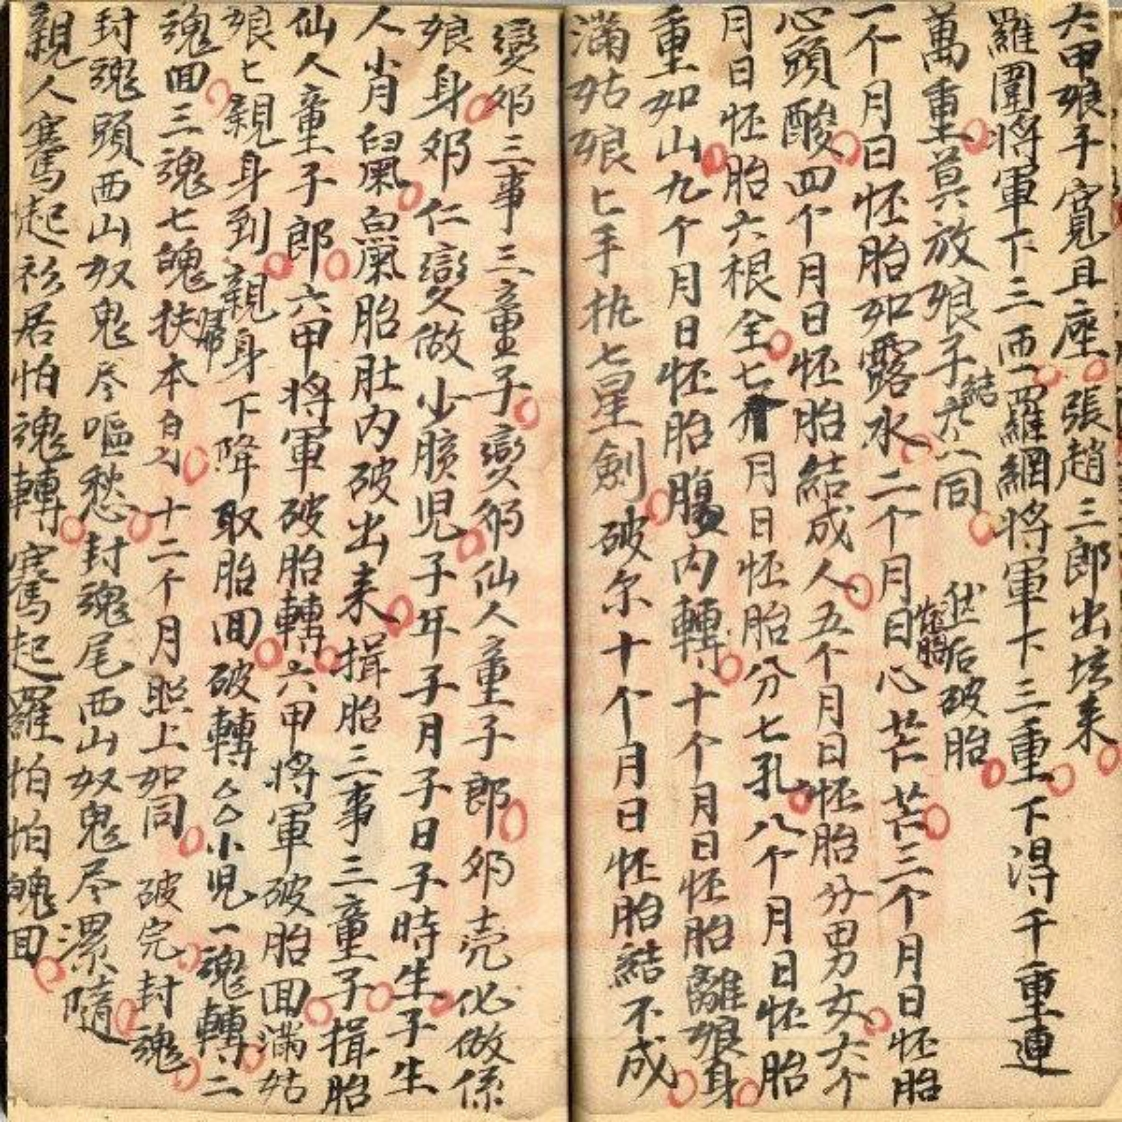 六甲娘子寬且座張趙三郎出壇来
羅圍將軍下三西羅網將軍下三重下得千重連
萬重莫放娘子六結六同 伏后破胎
一个月日怀胎如露水二个月日心芒芒三个月日怀胎
心頭酸四个月日怀胎結成人五个月日怀胎分男女六个
月日怀胎六根全七个月日怀胎分七孔八个月日怀胎
重如山九个月日怀胎腹内轉十个月日怀胎離娘身
滿姑娘匕手执七星劍破尔十个月日怀胎結不成
变邜三事三童子变邜仙人童子郎邜壳化做係
娘身邜仁变做少孩児子年子月子日子時生子生
人肖胎肚内破出来揖胎三事三童子揖胎
仙人童子郎六甲將軍破胎轉六甲將軍破胎囬滿姑
娘匕親身到親身下降取胎囬破轉厶厶小児一魂轉二
魂囬三魂七魄扶歸本自勾十二个月照上如同破完封魂
封魂頭西山奴鬼尽嘔愁封魂尾西山奴鬼尽漯隨
親人騫起衫居怕魂轉騫起羅怕怕魄囬